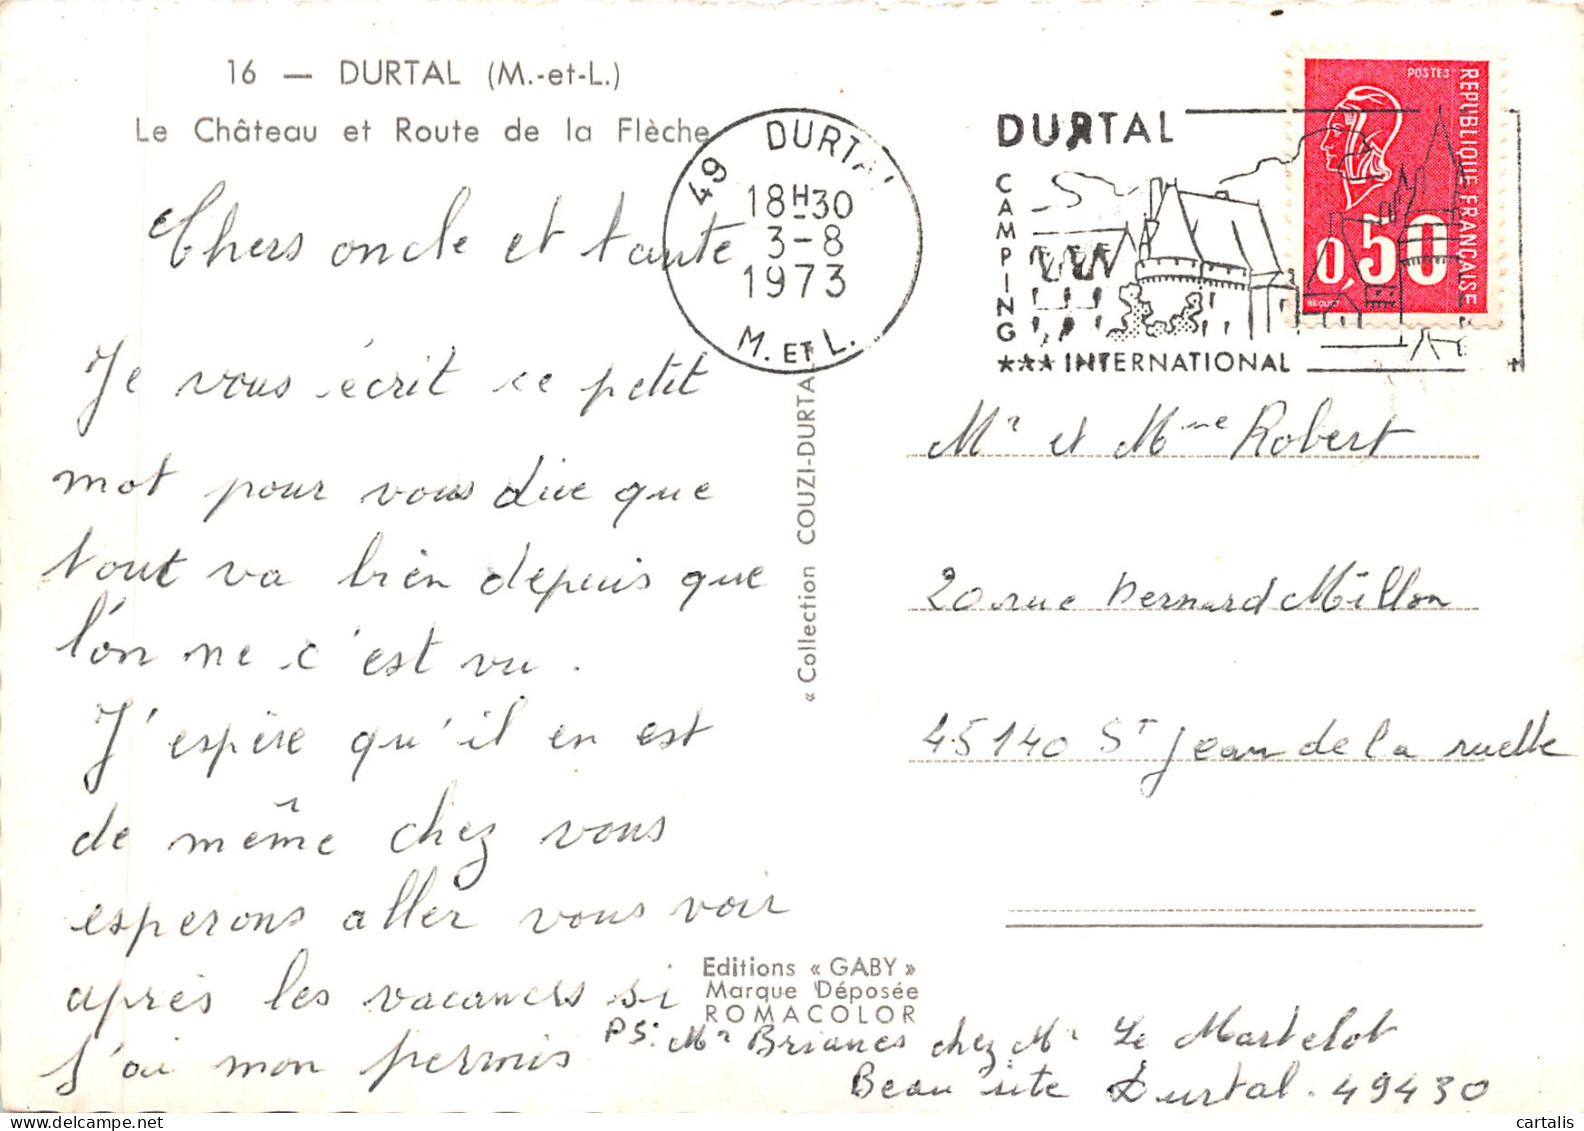 16 — DURTAL (M.-et-L.)
Le Château et Route de la Flèche
Chers oncle et tante
Je vous écrit ce petit
mot pour vous dire que
tout va bien depuis que
l'on ne c'est vu.
J'espère qu'il en est
de même chez vous
esperons aller vous voir
après les vacances si
j'ai mon permis
PS: Mr Briancs chez Mr Le Martelot
Beau site Durtal. 49430
Editions « GABY »
Marque Déposée
ROMACOLOR
« Collection COUZI-DURTAL
49 DURTAL
18H30
3-8
1973
M. ET L.
DURTAL
CAMPING
*** INTERNATIONAL
POSTES
REPUBLIQUE FRANÇAISE
0,50
BEQUET
Mr et Mme Robert
20 rue Bernard Million
45140 St Jean de la ruelle
cartalis